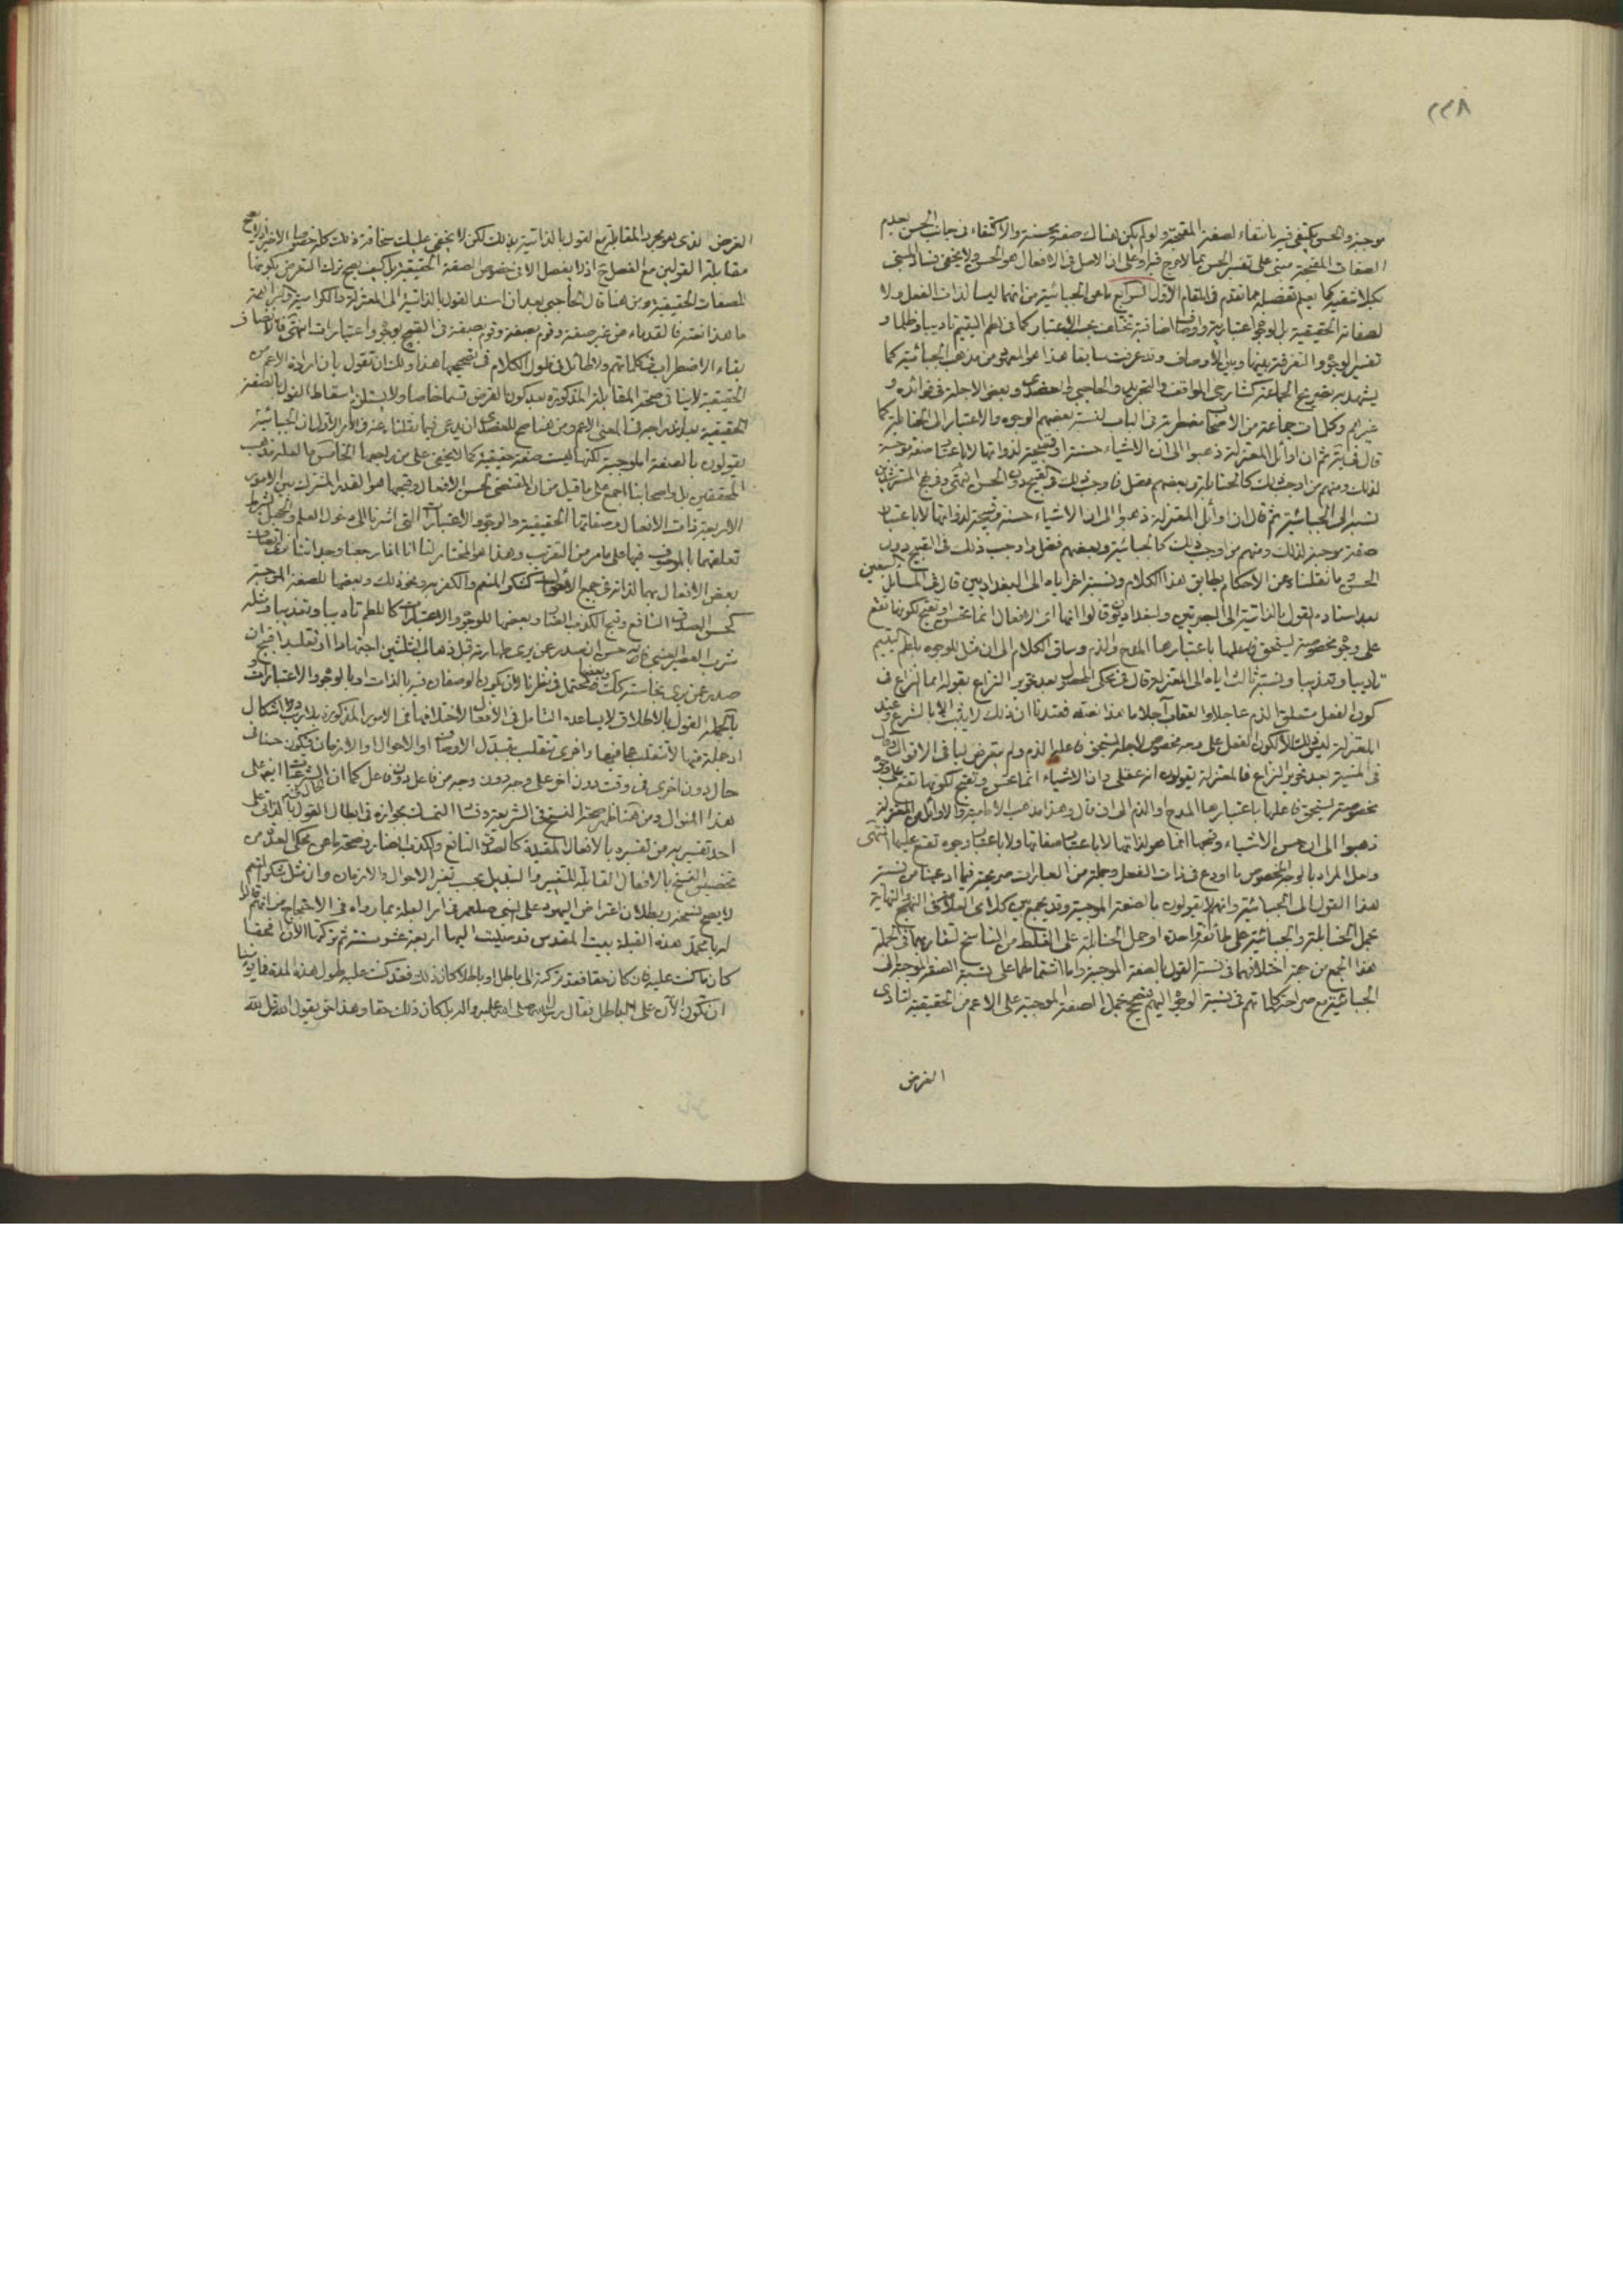 ٢٢٨
موجبة والحسن يكتفى فيه بانتفاء الصفة المقبحة ولو لم يكن هناك صفة محسنة والاكتفاء في جانب الحسن بعدم
الصفات المقبحة مبنى على تفسير الحسن بما لا حرج فيه او على ان الاصل في الافعال هو الحسن ولا يخفى فساد المبنى
بكلا شقيه كما يعلم تفصيله مما تقدم في المقام الاول الرابع ما عن الجبائية من انهما ليسا لذات الفعل ولا
لصفاته الحقيقية بل لوجوه اعتبارية واوصاف اضافية تختلف بحسب الاعتبار كما في لطم اليتيم تاديبا وظلما و
تفسير الوجوه والتفرقة بينها وبين الاوصاف قد عرفت سابقا هذا هو المعروف من مذهب الجبائية كما
يشهد به تصريح الجماعة كشارحي المواقف والتجريد والحاجبي والعضدي وبعض الاجلة في فوائده و
غيرهم وكلمات جماعة من الاصحاب مضطربة في الباب لنسبة بعضهم الوجوه والاعتبار الى الحنابلة كما
قال في ثم ان اوائل المعتزلة ذهبوا الى ان الاشياء حسنة او قبيحة لذواتها لا باعتبار صفة موجبة
لذلك ومنهم من اوجب ذلك كالحنابلة وبعضهم فصل فاوجب ذلك في القبيح دون الحسن انتهى وفي نهج المسترشدين
نسبه الى الجبائية ثم قال ان اوائل المعتزلة ذهبوا الى ان الاشياء حسنة وقبيحة لذواتها لا باعتبار
صفة موجبة لذلك ومنهم من اوجب ذلك كالجبائية وبعضهم فصل واوجب ذلك في القبيح دون
الحسن وما نقلناه عن الاحكام يطابق هذا الكلام ونسبة اخر اياه الى البغداديين قال في المسائل
بعد اسناده القول بالذاتية الى البصريين والبغداديون قالوا انها اى الافعال انما تحسن او تقبح لكونها تقع
على وجوه مخصوصة يستحق فاعلها باعتبارها المدح والذم وساق الكلام الى ان مثل للوجوه بلطم اليتيم
تاديبا وتعذيبا ونسبة ثالث اياه الى المعتزلة قال في محكى المحصول بعد تحرير النزاع بقوله انما النزاع في
كون الفعل متعلق الذم عاجلا والعقاب آجلا ما هذا نصه فعندنا ان ذلك لا يثبت الا بالشرع وعند
المعتزلة ليس ذلك الا لكون الفعل على وجه مخصوص لاجله يستحق فاعله الذم ولم يتعرض لباقي الاقوال وقال
في المنية بعد تحرير النزاع فالمعتزلة يقولون انه عقلى وان الاشياء انما تحسن وتقبح لكونها تقع على وجوه
مخصوصة يستحق فاعلها باعتبارها المدح او الذم الى ان قال وهذا مذهب الامامية والاوائل من المعتزلة
ذهبوا الى ان حسن الاشياء وقبحها انما هو لذاتها لا باعتبار صفاتها ولا باعتبار وجوه تقع عليها انتهى
ولعل المراد بالوجه المخصوص ما اودع في ذات الفعل وجملة من العبارات صريحة فيما ادعيناه من نسبة
هذا القول الى الجبائية وانهم لا يقولون بالصفة الموجبة وقد يجمع بين كلامى العلامة في النهج والنهاية
بحمل الحنابلة والجبائية على طائفة واحدة او حمل الحنابلة على الغلط من النساخ لتقاربهما في الجملة
هذا الجمع من جهة اختلافهما في نسبة القول بالصفة الموجبة واما اشتمالهما على نسبة الصفة الموجبة الى
الجبائية مع صراحة كلماتهم في نسبة الوجوه اليهم فيصح بحمل الصفة الموجبة على الاعم من الحقيقية لتأدى
الغرض
الغرض الذى هو مجرد المقابلة مع القول بالذاتية بذلك لكن لا يخفى عليك سخافة ذلك كله خصوصا الاخير اذ لا يصح
مقابلة القولين مع الفصل ح اذ لا يفصل الا في خصوص الصفة الحقيقية بل كيف يصح ترك التعرض بكونها
للصفات الحقيقية ومن هنا قال الحاجبي بعد ان اسند القول بالذاتية الى المعتزلة والكرامية والبراهمة
ما هذا نصه فالقدماء من غير صفة وقوم بصفة وقوم بصفة في القبيح بوجوه واعتبارات انتهى فالانصاف
بقاء الاضطراب في كلماتهم ولا طائل في طول الكلام في تصحيحها هذا ولك ان تقول بان ارادة الاعم من
الحقيقية لا ينافي صحة المقابلة المذكورة بعد كون الغرض قسما خاصا ولا يستلزم اسقاط القول بالصفة
الحقيقية بعد اندراجه في المعنى الاعم ومن هنا صح للعضدي ان يدعى فيما نقلناه عنه في الامر الاول ان الجبائية
يقولون بالصفة الموجبة لكنها ليست صفة حقيقية كما لا يخفى على من راجعها الخامس ما لعله مذهب
المحققين بل واصحابنا اجمع على ما قيل من ان المقتضى لحسن الافعال وقبحها هو القدر المشترك بين الامور
الاربعة ذات الافعال وصفاتها الحقيقية والوجوه والاعتبارات التى اشرنا الى دخول العلم والجهل بشرط
تعلقهما بالموصوف فيها على ما مر من التقريب وهذا هو المختار لنا انا اذا رجعنا وجداننا نقطع باتصاف
بعض الافعال بهما لذاته في جميع الاوقات كشكر المنعم والكفر به ونحو ذلك وبعضها للصفة الموجبة
كحسن الصدق النافع وقبح الكذب الضار وبعضها للوجوه والاعتبارات كاللطم تاديبا وتعذيبا ومثله
شرب العصير العنبي فانه حسن ان صدر عمن يرى طهارته قبل ذهاب الثلثين اجتهادا او تقليدا قبيح ان
صدر عمن يرى نجاسته كك وبعضها محتمل في نظرنا لان يكون الوصفان فيه بالذات او بالوجوه والاعتبارات
بالجملة القول بالاطلاق لا يساعده التامل في الافعال لاختلافها في الامور المذكورة بلا ريب ولا اشكال
اذ جملة منها لا تنقلب عما فيها واخرى تنقلب بتبدل الاوصاف او الاحوال او الازمان فيكون حسنا في
حال دون اخرى في وقت دون اخر على وجه دون وجه من فاعل دون فاعل كما ان الحال في الشرعيات ايضا على
هذا المنوال ومن هنا ظهر صحة النسخ في الشريعة وفساد التمسك بجوازه في ابطال القول بالذاتى على
احد تفسيريه من تفسيره بالافعال المقيدة كالصدق النافع والكذب الضار وصحة ما عن محكى العدة من
تخصيص النسخ بالافعال القابلة للتغيير والتبديل بحسب تغير الاحوال والازمان وان مثل شكر المنعم
لا يصح نسخه وبطلان اعتراض اليهود على النبى صلعم في امر القبلة بما رواه في الاحتجاج من انهم قالوا
له يا محمد هذه القبلة بيت المقدس قد صليت اليها اربعة عشر سنة ثم تركتها الآن افحقا
كان ما كنت عليه فان كان حقا فقد تركته الى باطل او باطلا كان ذلك فقد كنت عليه طول هذه المدة فما يؤمننا
ان تكون الآن على الباطل فقال رسول الله صلى الله عليه واله بل كان ذلك حقا وهذا حق يقول الله قل لله